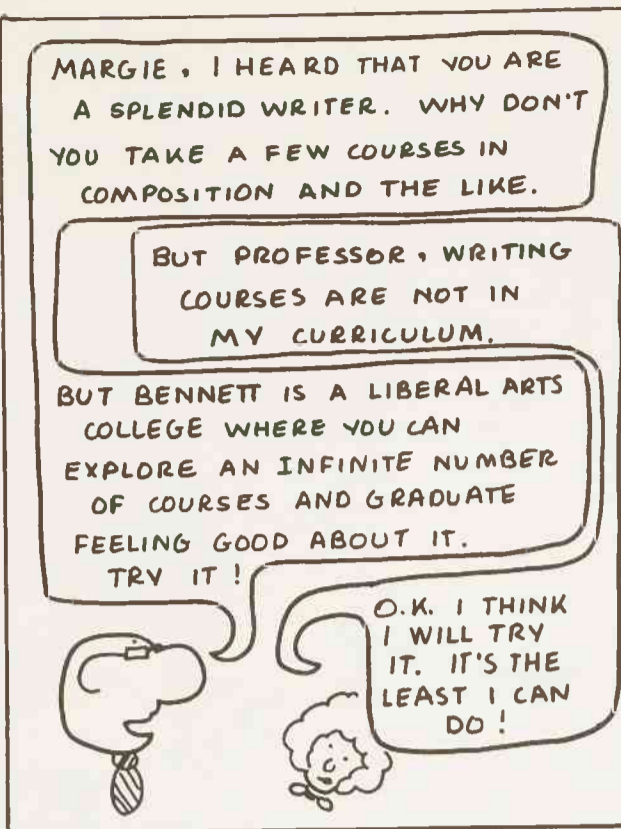 MARGIE, I HEARD THAT YOU ARE
A SPLENDID WRITER. WHY DON'T
YOU TAKE A FEW COURSES IN
COMPOSITION AND THE LIKE.
BUT PROFESSOR, WRITING
COURSES ARE NOT IN
MY CURRICULUM.
BUT BENNETT IS A LIBERAL ARTS
COLLEGE WHERE YOU CAN
EXPLORE AN INFINITE NUMBER
OF COURSES AND GRADUATE
FEELING GOOD ABOUT IT.
TRY IT!
O.K. I THINK
I WILL TRY
IT. IT'S THE
LEAST I CAN
DO!